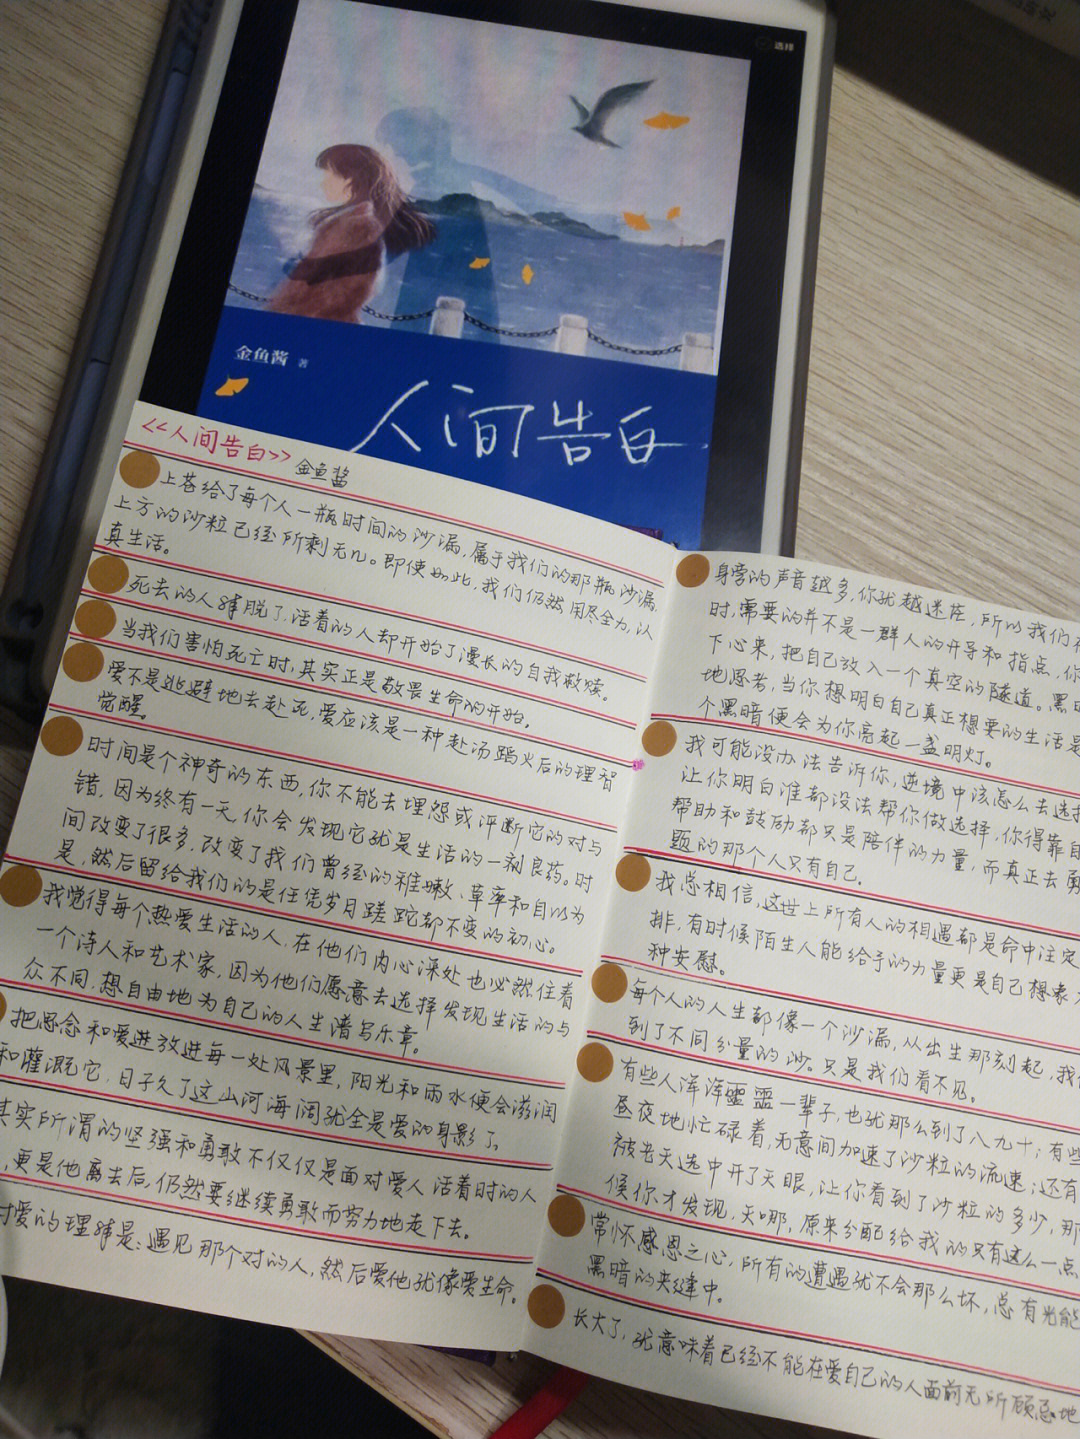 选择
金鱼酱 著
人间告白
<<人间告白>> 金鱼酱
上苍给了每个人一瓶时间的沙漏,属于我们的那瓶沙漏,
上方的沙粒已经所剩无几。即使如此,我们仍然用尽全力,认
真生活。
死去的人解脱了,活着的人却开始了漫长的自我救赎。
当我们害怕死亡时,其实正是敬畏生命的开始。
爱不是逃避地去赴死,爱应该是一种赴汤蹈火后的理智
觉醒。
时间是个神奇的东西,你不能去埋怨或评断它的对与
错,因为终有一天,你会发现它就是生活的一剂良药。时
间改变了很多,改变了我们曾经的稚嫩、草率和自以为
是,然后留给我们的是任凭岁月蹉跎都不变的初心。
我觉得每个热爱生活的人,在他们内心深处也必然住着
一个诗人和艺术家,因为他们愿意去选择发现生活的与
众不同,想自由地为自己的人生谱写乐章。
把思念和爱进放进每一处风景里,阳光和雨水便会滋润
和灌溉它,日子久了这山河海阔就全是爱的身影了。
其实所谓的坚强和勇敢不仅仅是面对爱人活着时的人
,更是他离去后,仍然要继续勇敢而努力地走下去。
对爱的理解是:遇见那个对的人,然后爱他就像爱生命。
身旁的声音越多,你就越迷茫,所以我们
时,需要的并不是一群人的开导和指点,你
下心来,把自己放入一个真空的隧道。黑暗
地思考,当你想明白自己真正想要的生活是
个黑暗便会为你亮起一盏明灯。
我可能没办法告诉你,逆境中该怎么去选择
让你明白谁都没法帮你做选择,你得靠自
帮助和鼓励都只是陪伴的力量,而真正去
题的那个人只有自己。
我总相信,这世上所有人的相遇都是命中注定
排,有时候陌生人能给予的力量更是自己想象
种安慰。
每个人的人生都像一个沙漏,从出生那刻起,我们
到了不同分量的沙。只是我们看不见。
有些人浑浑噩噩一辈子,也就那么到了八九十;有些
昼夜地忙碌着,无意间加速了沙粒的流速;还有
被老天选中开了天眼,让你看到了沙粒的多少,那
候你才发现,天哪,原来分配给我的只有这么一点
常怀感恩之心,所有的遭遇就不会那么坏,总有光能
黑暗的夹缝中。
长大了,就意味着已经不能在爱自己的人面前无所顾忌地